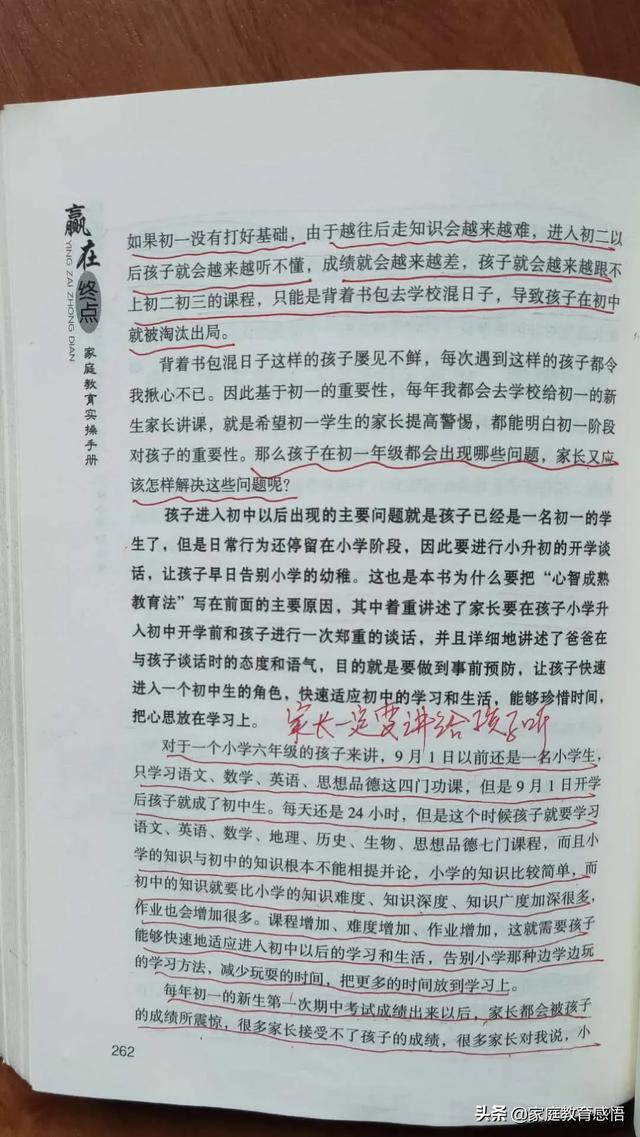 赢在终点
YING ZAI ZHONG DIAN
家庭教育实操手册
如果初一没有打好基础，由于越往后走知识会越来越难，进入初二以
后孩子就会越来越听不懂，成绩就会越来越差，孩子就会越来越跟不
上初二初三的课程，只能是背着书包去学校混日子，导致孩子在初中
就被淘汰出局。
背着书包混日子这样的孩子屡见不鲜，每次遇到这样的孩子都令
我揪心不已。因此基于初一的重要性，每年我都会去学校给初一的新
生家长讲课，就是希望初一学生的家长提高警惕，都能明白初一阶段
对孩子的重要性。那么孩子在初一年级都会出现哪些问题，家长又应
该怎样解决这些问题呢？
孩子进入初中以后出现的主要问题就是孩子已经是一名初一的学
生了，但是日常行为还停留在小学阶段，因此要进行小升初的开学谈
话，让孩子早日告别小学的幼稚。这也是本书为什么要把“心智成熟
教育法”写在前面的主要原因，其中着重讲述了家长要在孩子小学升
入初中开学前和孩子进行一次郑重的谈话，并且详细地讲述了爸爸在
与孩子谈话时的态度和语气，目的就是要做到事前预防，让孩子快速
进入一个初中生的角色，快速适应初中的学习和生活，能够珍惜时间，
把心思放在学习上。 家长一定要讲给孩子听
对于一个小学六年级的孩子来讲，9月1日以前还是一名小学生，
只学习语文、数学、英语、思想品德这四门功课，但是9月1日开学
后孩子就成了初中生。每天还是24小时，但是这个时候孩子就要学习
语文、英语、数学、地理、历史、生物、思想品德七门课程，而且小
学的知识与初中的知识根本不能相提并论，小学的知识比较简单，而
初中的知识就要比小学的知识难度、知识深度、知识广度加深很多，
作业也会增加很多。课程增加、难度增加、作业增加，这就需要孩子
能够快速地适应进入初中以后的学习和生活，告别小学那种边学边玩
的学习方法，减少玩耍的时间，把更多的时间放到学习上。
每年初一的新生第一次期中考试成绩出来以后，家长都会被孩子
的成绩所震惊，很多家长接受不了孩子的成绩，很多家长对我说，小
262
头条 @家庭教育感悟